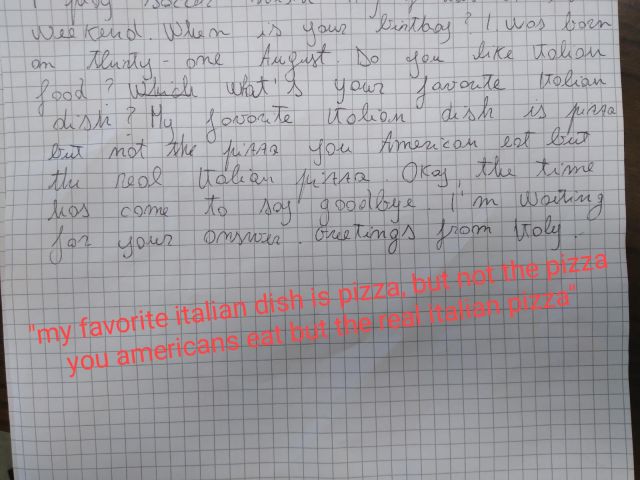 I play soccer
weekend. When is your birthday? I was born
on thirty-one August. Do you like Italian
food? Which what's your favorite Italian
dish? My favorite Italian dish is pizza
but not the pizza you American eat but
the real Italian pizza. Okay, the time
has come to say goodbye. I'm waiting
for your answer. Greetings from Italy.
"my favorite italian dish is pizza, but not the pizza
you americans eat but the real italian pizza"